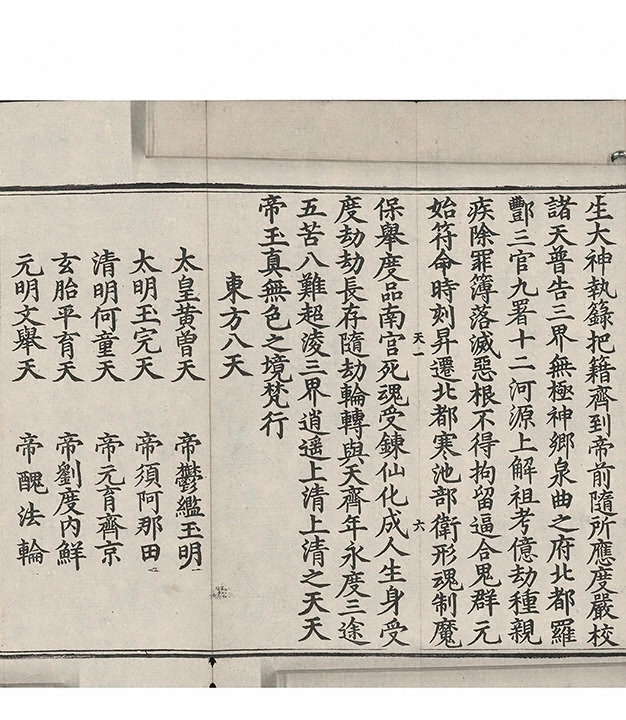 生大神執籙把籍齊到帝前隨所應度嚴校
諸天普告三界無極神鄉泉曲之府北都羅
酆三官九署十二河源上解祖考億劫種親
疾除罪簿落滅惡根不得拘留逼合鬼群元
始符命時刻昇遷北都寒池部衛形魂制魔
天一 六
保舉度品南宮死魂受鍊仙化成人生身受
度劫劫長存隨劫輪轉與天齊年永度三途
五苦八難超淩三界逍遥上清上清之天天
帝玉真無色之境梵行
東方八天
太皇黄曽天 帝鬱繿玉明
太明玉完天 帝須阿那田
清明何童天 帝元育齊京
玄胎平育天 帝劉度内鮮
元明文舉天 帝醜法輪